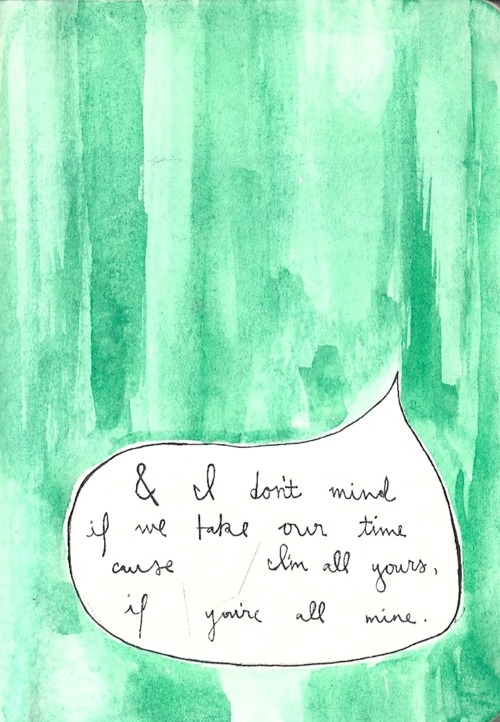 & I don't mind
if we take our time
cause I'm all yours,
if you're all mine.